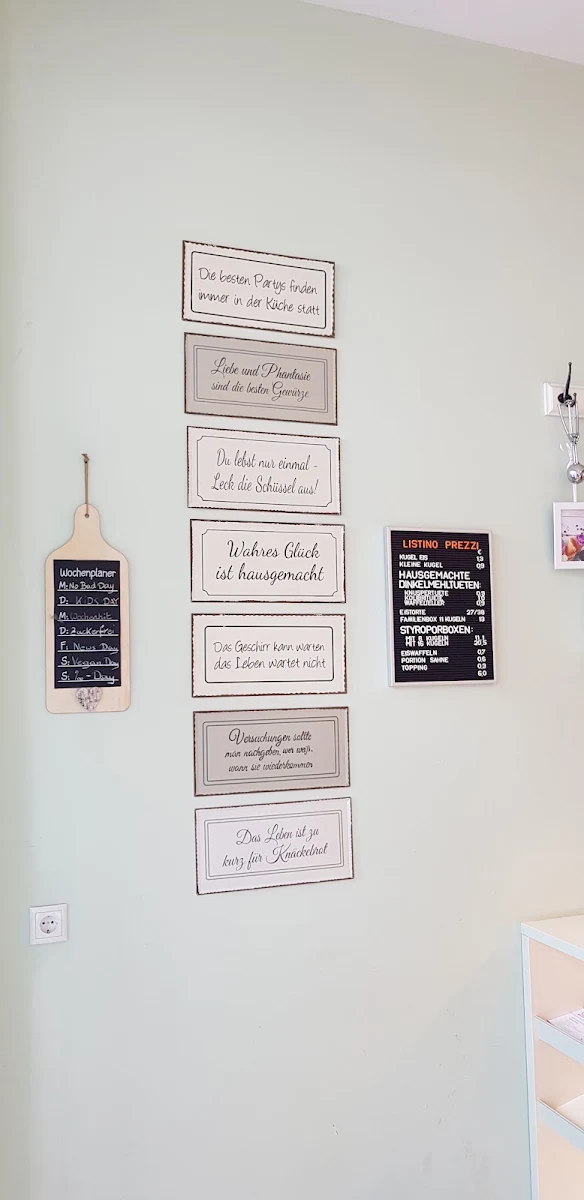 Die besten Partys finden
immer in der Küche statt
Liebe und Phantasie
sind die besten Gewürze
Du lebst nur einmal -
Leck die Schüssel aus!
Wahres Glück
ist hausgemacht
Das Geschirr kann warten
das Leben wartet nicht
Versuchungen sollte
man nachgeben, wer weiß,
wann sie wiederkommen
Das Leben ist zu
kurz für Knäckebrot
Wochenplaner
M: No Bad Day
D: KIDS DAY
M:
D: Zuckerfrei
F: News Day
S: Vegan Day
S: ice - Day
LISTINO PREZZI
€
KUGEL EIS 1,3
KLEINE KUGEL 0,9
HAUSGEMACHTE
DINKELMEHLTUETEN:
KNUSPERTUETE
WAFFELTELLER 0,9
EISTORTE 27/38
FAMILIENBOX 11 KUGELN 13
STYROPORBOXEN:
MIT 8 KUGELN 11,1
MIT 16 KUGELN 20,5
EISWAFFELN 0,7
PORTION SAHNE 0,6
TOPPING 0,3
6,0